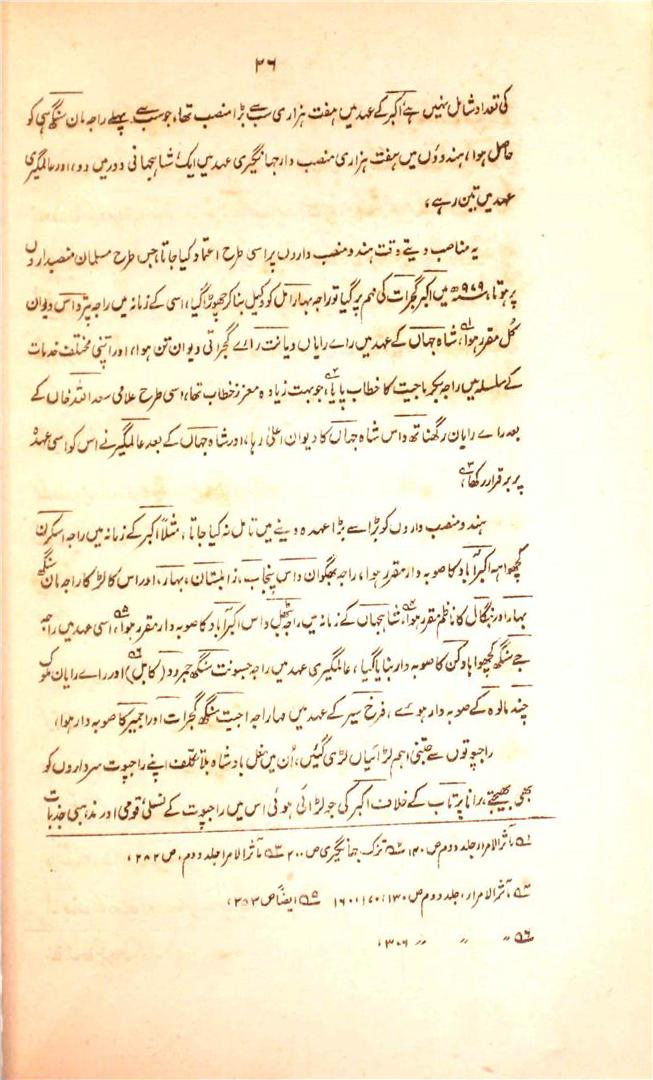 ۲۶
کی تعداد شامل نہیں ہے، اکبر کے عہد میں ہفت ہزاری سب سے بڑا منصب تھا، جو سب سے پہلے راجہ مان سنگھ ہی کو
حاصل ہوا، ہندوؤں میں ہفت ہزاری منصب دار جہانگیری عہد میں ایک شاہجہانی دور میں دو، اور عالمگیری
عہد میں تین رہے،
یہ مناصب دیتے وقت ہندو منصب داروں پر اسی طرح اعتماد کیا جاتا جس طرح مسلمان منصبداروں
پر ہوتا، ۹۷۹ھ میں اکبر گجرات کی مہم پر گیا تو راجہ بہارا مل کو وکیل بنا کر چھوڑا گیا، اسی کے زمانہ میں راجہ پترداس دیوان
کل مقرر ہوا،۱؎ شاہ جہاں کے عہد میں راے رایاں دیانت راے گجراتی دیوان تن ہوا، اور اپنی مختلف خدمات
کے سلسلہ میں راجہ بکرماجیت کا خطاب پایا،۲؎ جو بہت زیادہ معزز خطاب تھا، اسی طرح علامی سعد اللہ خاں کے
بعد راے رایان رگھناتھ داس شاہ جہاں کا دیوان اعلیٰ رہا، اور شاہ جہاں کے بعد عالمگیر نے اس کو اسی عہدہ
پر برقرار رکھا،۳؎
ہندو منصب داروں کو بڑا سے بڑا عہدہ دینے میں تامل نہ کیا جاتا، مثلاً اکبر کے زمانہ میں راجہ اسکرن
کچھواہہ اکبر آباد کا صوبہ دار مقرر ہوا، راجہ بھگوان داس پنجاب، زابلستان، بہار، اور اس کا لڑکا راجہ مان سنگھ
بہار اور بنگال کا ناظم مقرر ہوا،۴؎ شاہجہاں کے زمانہ میں راجہ بٹھل داس اکبر آباد کا صوبہ دار مقرر ہوا،۵؎ اسی عہد میں راجہ
جے سنگھ کچھواہا دکن کا صوبہ دار بنایا گیا، عالمگیری عہد میں راجہ جسونت سنگھ جمرود (کابل)۶؎ اور راے رایان ملوک
چند مالوہ کے صوبہ دار ہوئے، فرخ سیر کے عہد میں مہاراجہ اجیت سنگھ گجرات اور اجمیر کا صوبہ دار ہوا،
راجپوتوں سے جتنی اہم لڑائیاں لڑی گئیں، اُن میں مغل بادشاہ بلا تکلف اپنے راجپوت سرداروں کو
بھی بھیجتے، رانا پرتاب کے خلاف اکبر کی جو لڑائی ہوئی اس میں راجپوت کے نسلی قومی اور مذہبی جذبات
۱؎ مآثر الامراء جلد دوم ص ۱۴۰ ۲؎ تزک جہانگیری ص ۲۰۰ ۳؎ مآثر الامرا جلد دوم، ص ۲۸۲،
۴؎ مآثر الامراء، جلد دوم ص ۱۳۰، ۱۷۰، ۱۶۰ ۵؎ ایضاً ص ۲۵۳،
۶؎ ،، ،، ،، ۳۰۶،